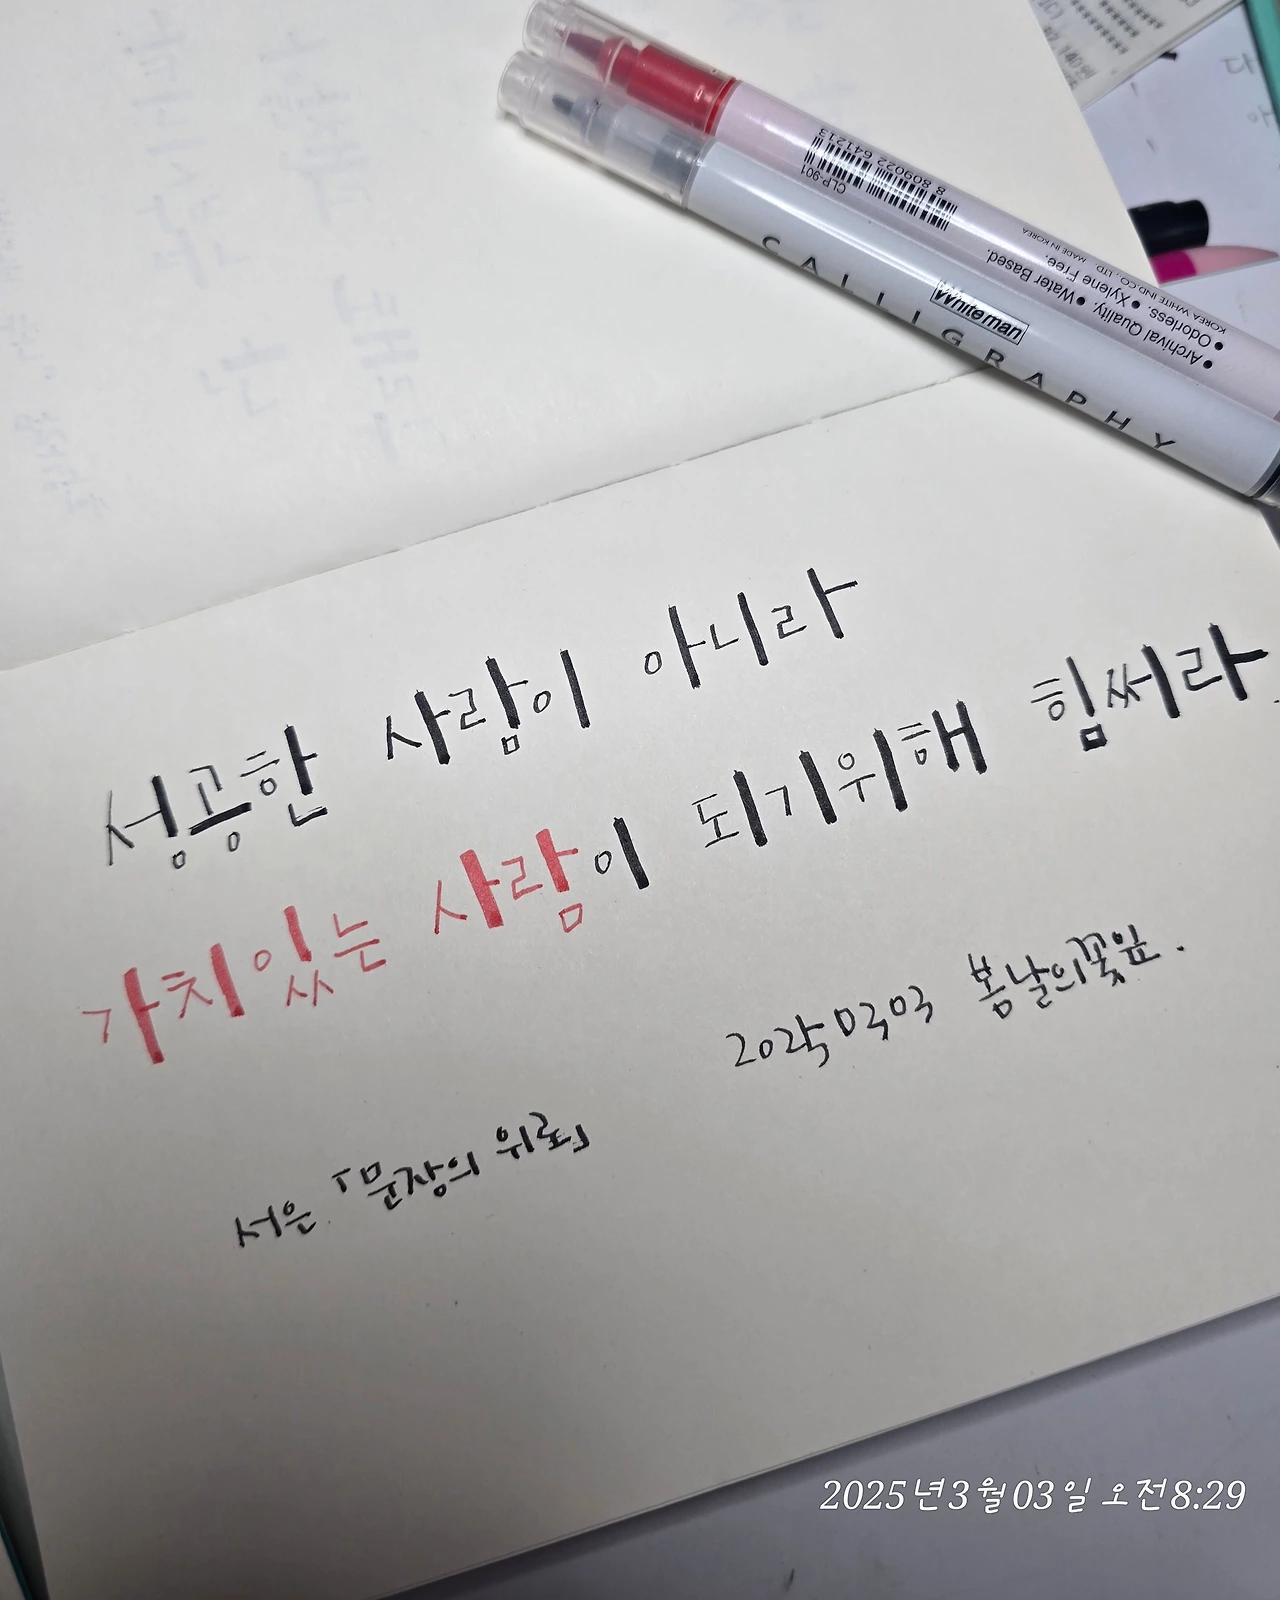 8 809022 641213
CLP-901
KOREA WHITE IND.CO., LTD. MADE IN KOREA
• Archival Quality. • Water Based.
• Odorless. • Xylene Free.
Whiteman
CALLIGRAPHY
성공한 사람이 아니라
가치있는 사람이 되기위해 힘써라.
2025 03 03 봄날의꽃잎.
서은 「문장의 위로」
2025년3월03일 오전8:29